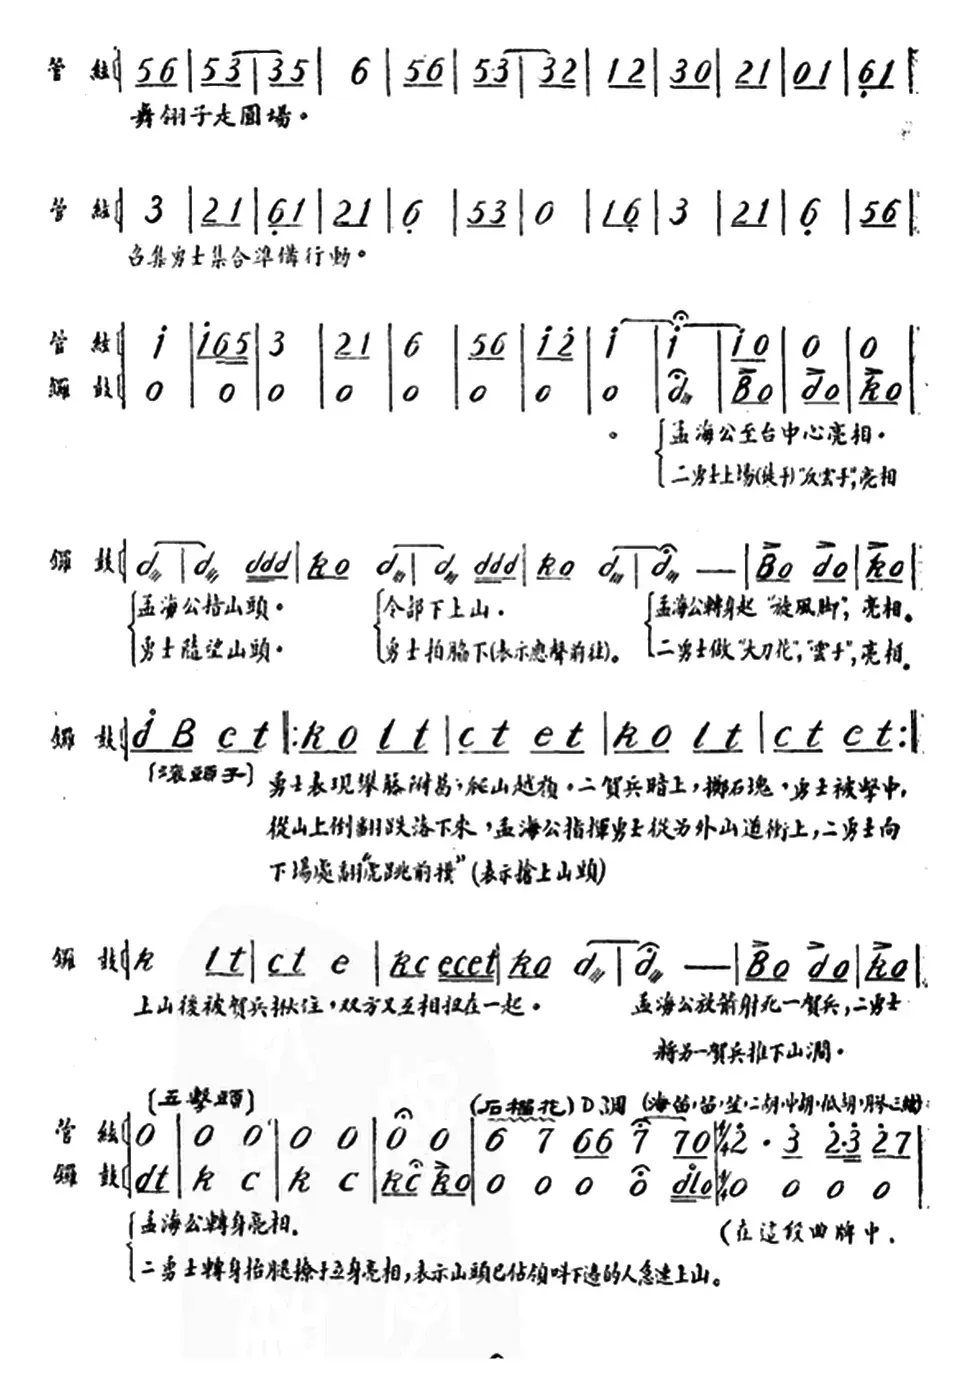 管 絃 56 | 53 | 35 | 6 | 56 | 53 | 32 | 12 | 30 | 21 | 01 | 61 |
舞翎子走圓場。
管 絃 3 | 21 | 61 | 21 | 6 | 53 | 0 | 16 | 3 | 21 | 6 | 56 |
召集勇士集合準備行動。
管 絃 i | i65 | 3 | 21 | 6 | 56 | i2 | i | i | i0 | 0 | 0
鑼 鼓 0 | 0 | 0 | 0 | 0 | 0 | 0 | 0 | d | B0 | d0 | k0
孟海公至台中心亮相。
二勇士上場(徒手)"反雲子",亮相
鑼 鼓 d | d ddd | k0 d | d ddd | k0 d | d — | B0 d0 | k0
孟海公指山頭。 令部下上山。 孟海公轉身起"旋風脚",亮相。
勇士隨望山頭。 勇士拍脇下(表示應聲前往)。 二勇士做"大刀花","雲子",亮相。
鑼 鼓 d B c t |: k 0 l t | c t e t | k 0 l t | c t c t :|
(滚頭子) 勇士表現攀藤附葛,爬山越嶺。二賀兵暗上,擲石塊,勇士被擊中,
從山上倒翻跌落下來,孟海公指揮勇士從另外山道衝上,二勇士向
下場處翻"虎跳前撲"(表示搶上山頭)
鑼 鼓 k l t | c t e | k c e c e t | k 0 d | d — | B0 d0 | k0
上山後被賀兵 住,双方又互相扭在一起。 孟海公放箭射死一賀兵,二勇士
將另一賀兵推下山澗。
(五擊頭) (石榴花) D調 (海笛,笛,笙,二胡,中胡,低胡,
管 絃 0 | 0 0 | 0 0 | 0 0 | 6 7 66 7 | 70 | 4/4 2 · 3 2·3 27
鑼 鼓 dt | k c | k c | kc k0 | 0 0 0 0 | dl0 | 4/4 0 0 0 0
孟海公轉身亮相. (在這段曲牌中.
二勇士轉身抬腿撩手立身亮相,表示山頭已佔領叫下邊的人急速上山。